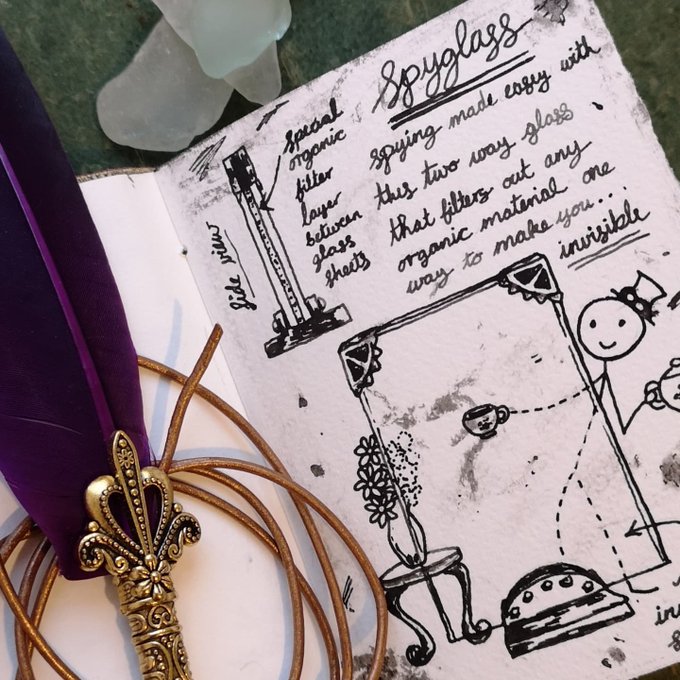 Spyglass
spying made easy with
this two way glass
that filters out any
organic material one
way to make you...
invisible
special
organic
filter
layer
between
glass
sheets
Side view